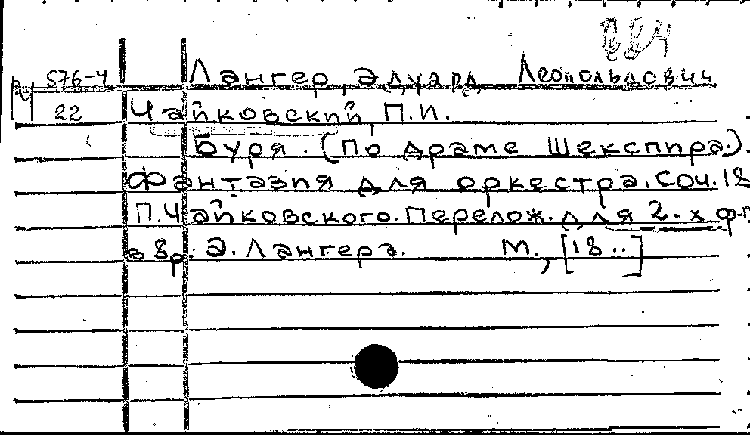 576-4 Лангер, Эдуард Леопольдович
22 Чайковский, П.И.
Буря. (По драме Шекспира).
Фантазия для оркестра. Соч. 18
П. Чайковского. Перелож. для 2-х ф-п
в 8 р. Э. Лангера. М., [18..]